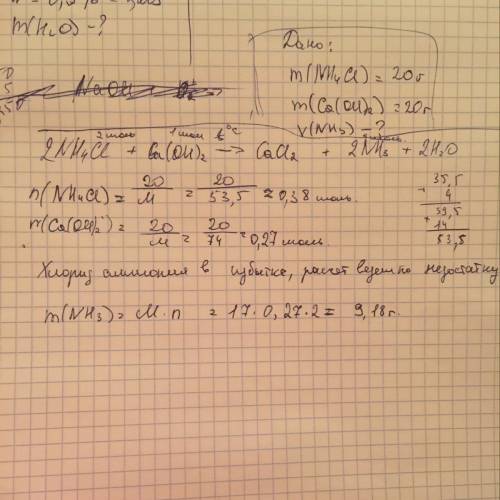 m(H₂O) - ?
Дано:
m(NH₄Cl) = 20г
m(Ca(OH)₂) = 20г
V(NH₃) - ?
NaOH
2 моль 1 моль t°C 2 моль
2NH₄Cl + Ca(OH)₂ → CaCl₂ + 2NH₃ + 2H₂O
n(NH₄Cl) = 20/M = 20/53,5 = 0,38 моль.
n(Ca(OH)₂) = 20/M = 20/74 = 0,27 моль.
35,5
+ 4
39,5
+ 14
53,5
Хлорид аммония в избытке, расчет ведем по недостатку
m(NH₃) = M · n = 17 · 0,27 · 2 = 9,18 г.